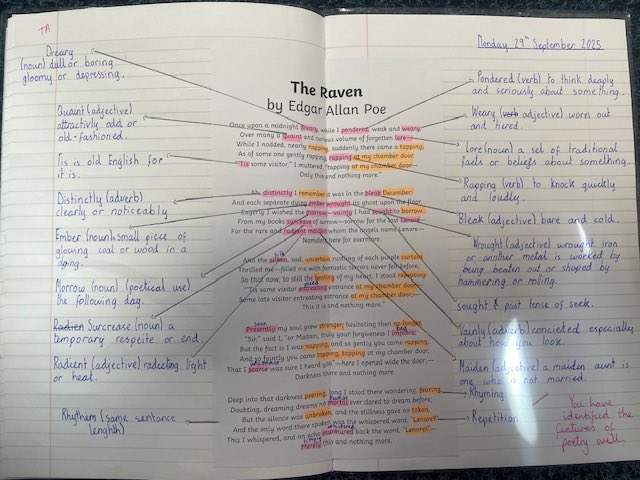 TA
Monday 29th September 2025
Dreary
(noun) dull or boring
gloomy or depressing.
Quaint (adjective)
attractivly odd or
old-fashioned.
Tis is old English for
it is.
Distinctly (adverb)
clearly or noticeably
Ember (noun) small piece of
glowing coal or wood in a
Morrow (noun) (poetical use)
the following day.
Radien Surcrease (noun) a
temporary respeite or end.
Radient (adjective) radieting light
or heat.
Rhythem (same sentence
lenghth)
The Raven
by Edgar Allan Poe
Once upon a midnight dreary, while I pondered, weak and weary,
Over many a quaint and curious volume of forgotten lore—
While I nodded, nearly napping, suddenly there came a tapping,
As of some one gently rapping, rapping at my chamber door.
"'Tis some visitor," I muttered, "tapping at my chamber door—
Only this and nothing more."
Ah, distinctly I remember it was in the bleak December;
And each separate dying ember wrought its ghost upon the floor.
Eagerly I wished the morrow;—vainly I had sought to borrow
From my books surcease of sorrow—sorrow for the lost Lenore—
For the rare and radiant maiden whom the angels name Lenore—
Nameless here for evermore.
And the silken, sad, uncertain rustling of each purple curtain
Thrilled me—filled me with fantastic terrors never felt before;
So that now, to still the beating of my heart, I stood repeating
"'Tis some visitor entreating entrance at my chamber door—
Some late visitor entreating entrance at my chamber door;—
This it is and nothing more."
soon
Presently my soul grew stronger; hesitating then no longer,
"Sir," said I, "or Madam, truly your forgiveness I implore;
But the fact is I was napping, and so gently you came rapping,
And so faintly you came tapping, tapping at my chamber door,
That I scarce was sure I heard you"—here I opened wide the door;—
Darkness there and nothing more.
Deep into that darkness peering, long I stood there wondering, fearing,
human
Doubting, dreaming dreams no mortal ever dared to dream before;
But the silence was unbroken, and the stillness gave no token,
And the only word there spoken was the whispered word, "Lenore?"
whispered
This I whispered, and an echo murmured back the word, "Lenore!"—
Merely this and nothing more.
Pondered (verb) to think deaply
and seriously about something.
Weary (verb adjective) worn out
and tiered.
Lore (noun) a set of traditional
facts or beliefs about something.
Rapping (verb) to knock quickly
and loudly.
Bleak (adjective) bare and cold.
Wrought (adjective) wrought iron
or another metal is worked by
being beaten out or shaped by
hammering or rolling.
sought past tense of seek.
Vainly (adverb) concieted especially
about how you look.
Maiden (adjective) a maiden aunt is
one who is not married.
Rhyming
Repetition
You have
identified the
features of
poetry well